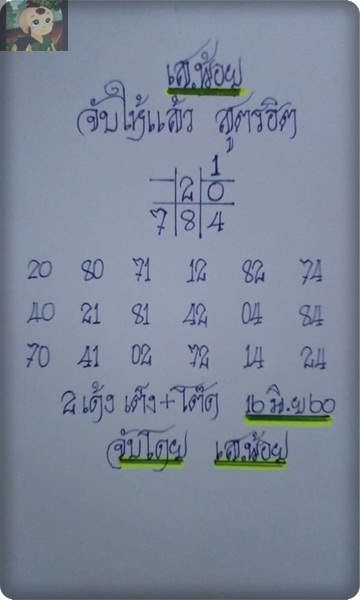 เส.น้อย
จับให้แล้ว สูตรฮิต
1
2 0
7 8 4
20 80 71 12 82 74
40 21 81 42 04 84
70 41 02 72 14 24
2 เด้ง เต็ง+โต๊ด 16 มิ.ย 60
จับโดย เส.น้อย